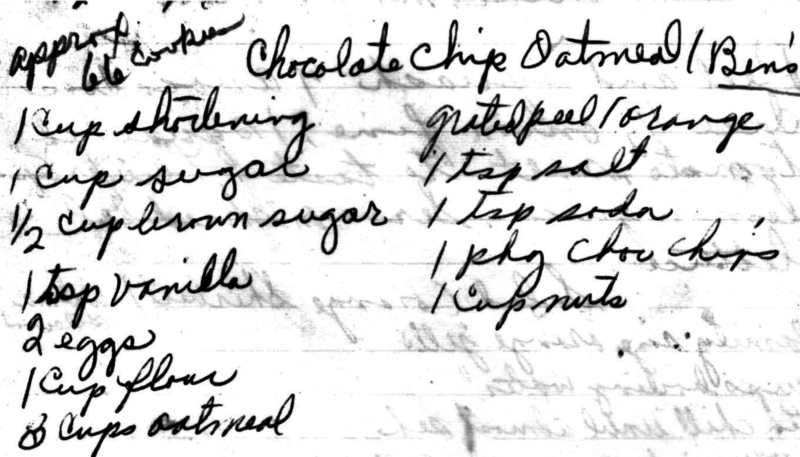 approx
66 cookies
Chocolate Chip Oatmeal / Ben's
1 Cup shortening
1 cup sugar
1/2 cup brown sugar
1 tsp vanilla
2 eggs
1 cup flour
3 cups oatmeal
grated peel 1 orange
1 tsp salt
1 tsp soda
1 pkg choc chips
1 cup nuts